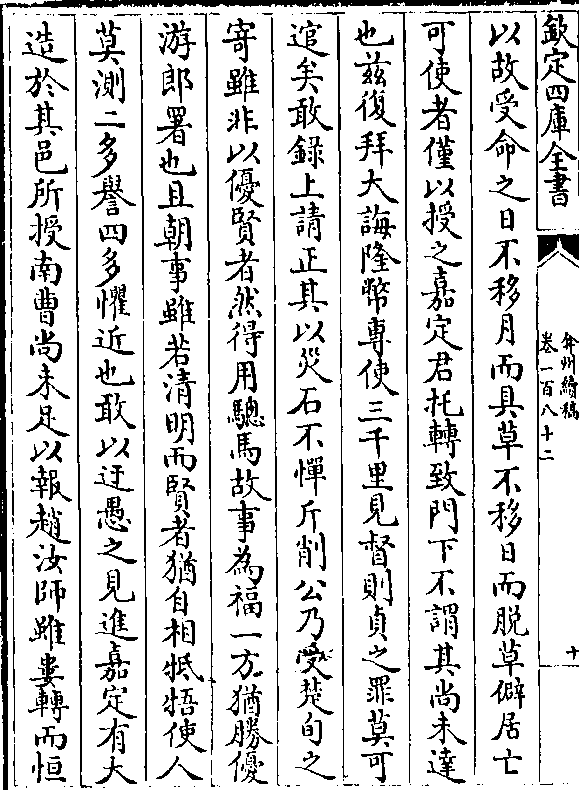 欽定四庫全書
弇州續稿
卷一百八十二
十
以故受命之日不移月而具草不移日而脱草僻居亡
可使者僅以授之嘉定君托轉致門下不謂其尚未達
也兹復拜大誨隆幣專使三千里見督則貞之罪莫可
逭矣敢錄上請正其以災石不憚斤削公乃受楚旬之
寄雖非以優賢者然得用驄馬故事為福一方猶勝優
游郎署也且朝事雖若清明而賢者猶自相牴牾使人
莫測二多譽四多懼近也敢以迂愚之見進嘉定有大
造於其邑所授南曹尚未足以報趙汝師雖婁轉而恒